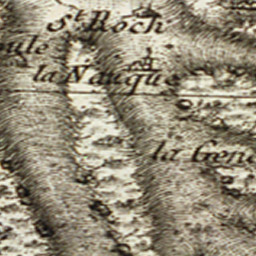 St. Roch
oule
la Nauque
la Gene